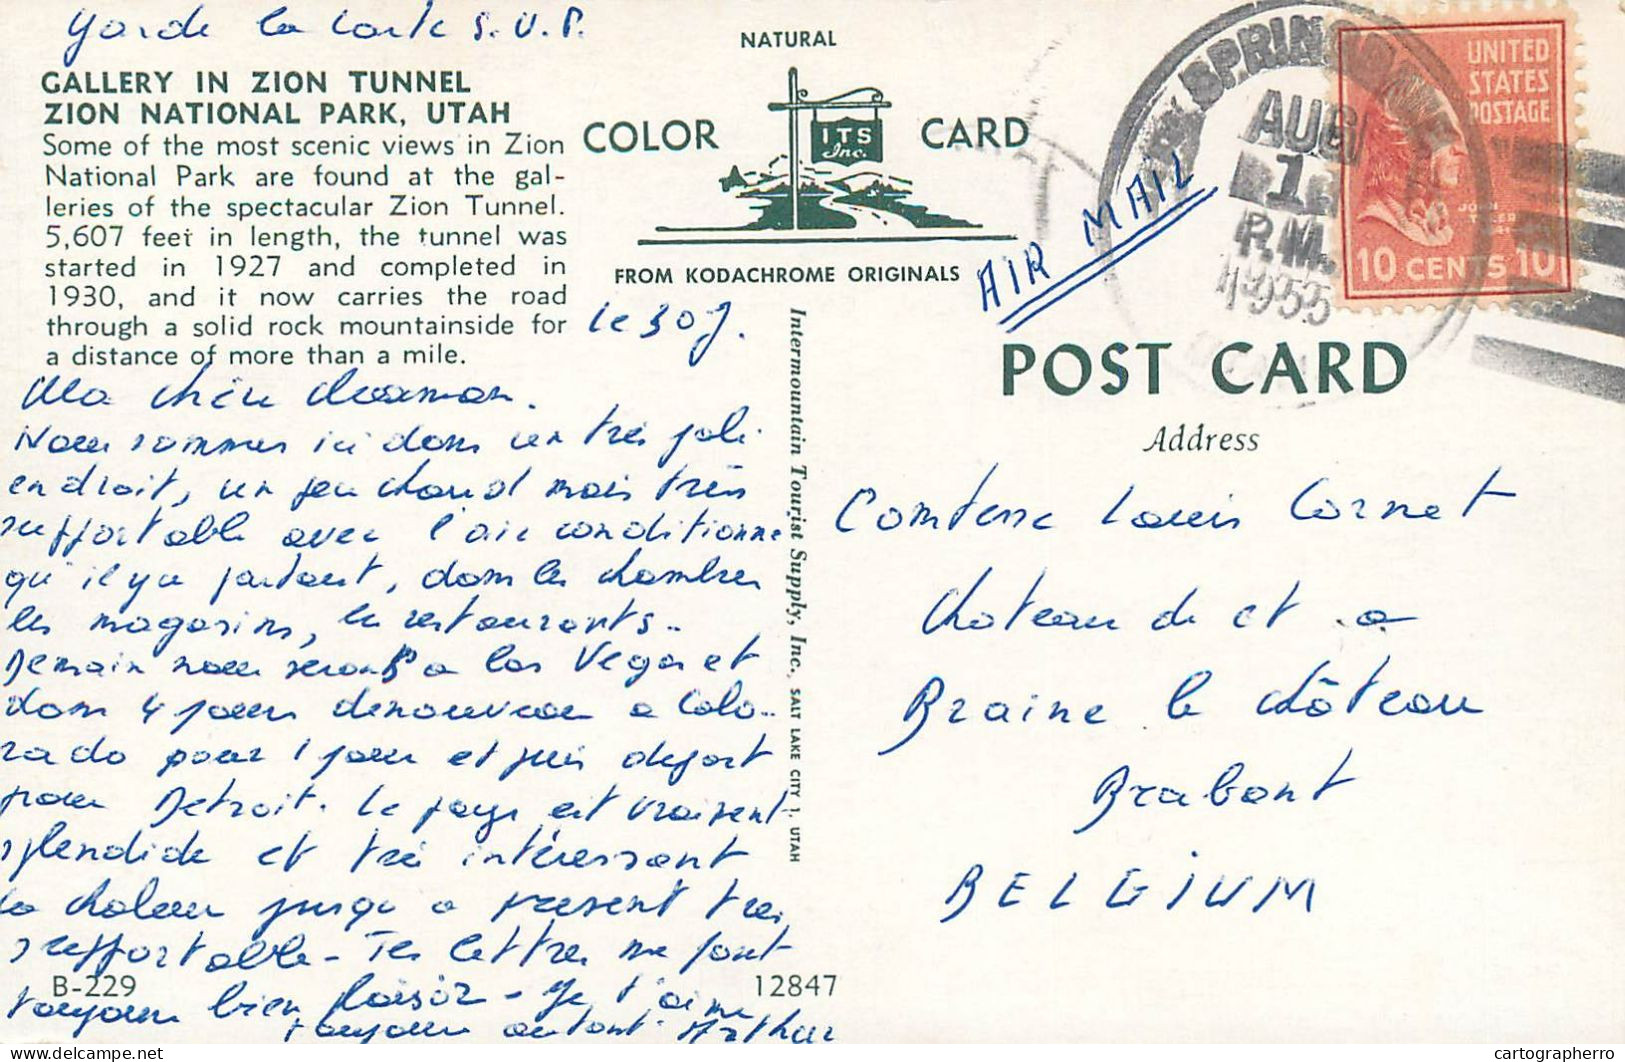 Garde la carte S.V.P.
GALLERY IN ZION TUNNEL
ZION NATIONAL PARK, UTAH
Some of the most scenic views in Zion
National Park are found at the gal-
leries of the spectacular Zion Tunnel.
5,607 feet in length, the tunnel was
started in 1927 and completed in
1930, and it now carries the road
through a solid rock mountainside for
a distance of more than a mile.
le 30 J.
Ma chère Maman.
Nous sommes ici dans un très joli
endroit, un peu chaud mais très
supportable avec l'air conditionné
qu'il y a partout, dans les chambres
les magasins, les restaurants..
Demain nous serons à Las Vegas et
dans 4 jours de nouveau a Colo-
rado pour 1 jour et puis départ
pour Detroit. Le pays est vraiment
splendide et très intéressant
la chaleur jusqu'a present très
supportable - Tes lettres me font
toujours bien plaisir - je t'aime
toujours autant. Arthur
B-229
12847
NATURAL
COLOR CARD
ITS
Inc.
FROM KODACHROME ORIGINALS
Intermountain Tourist Supply, Inc., SALT LAKE CITY 1, UTAH
AIR MAIL
SPRINGDALE
AUG
1
P.M.
1955
UNITED
STATES
POSTAGE
JOHN
TYLER
10 CENTS 10
POST CARD
Address
Comtesse Louis Cornet
Chateau de et a
Braine le château
Brabant
BELGIUM
cartographerro